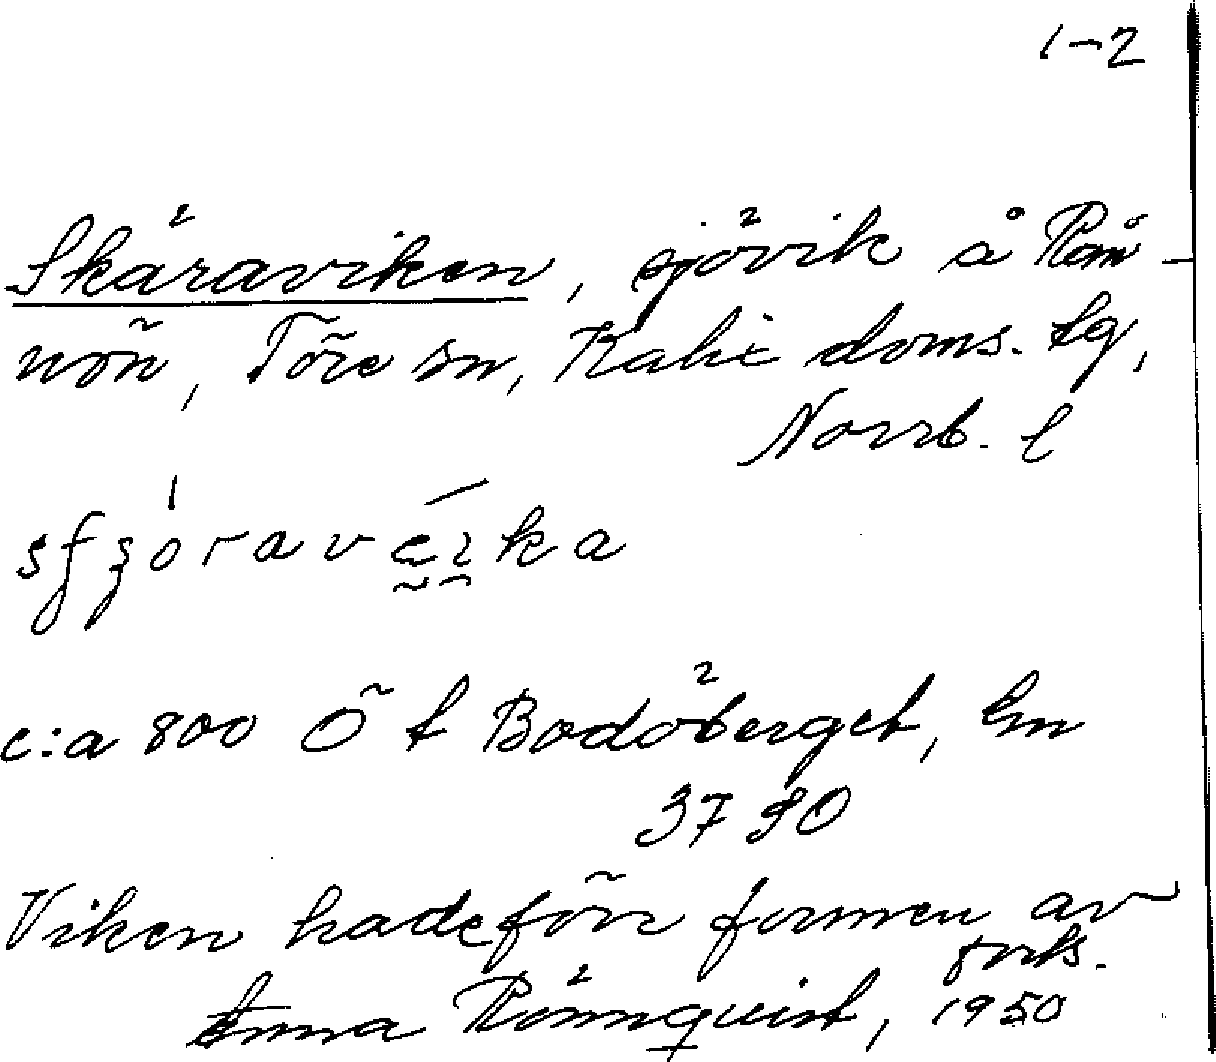 1-2
Skäraviken, sjövik å Rån-
nön, Töre sn, Kalix doms. tg,
Norrb. l
c:a 800 Ö t Bodöberget, Gm
3790
Viken hade förr formen av
forts.
Anna Rönnquist, 1950